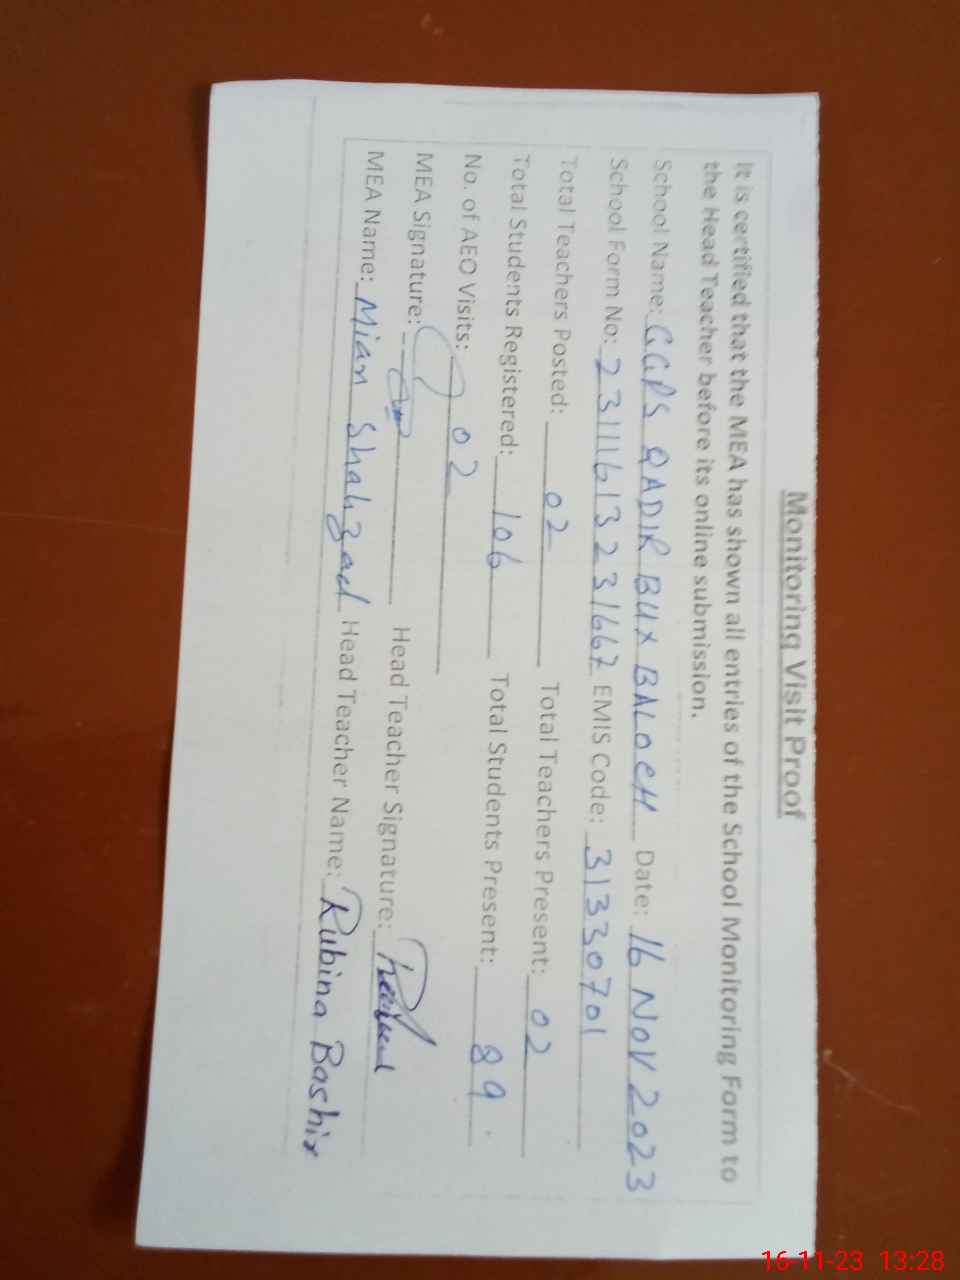 Monitoring Visit Proof
It is certified that the MEA has shown all entries of the School Monitoring Form to
the Head Teacher before its online submission.
School Name: GGPS QADIR BUX BALOCH Date: 16 NOV 2023
School Form No: 23111613231667 EMIS Code: 31330701
Total Teachers Posted: 02 Total Teachers Present: 02
Total Students Registered: 106 Total Students Present: 89
No. of AEO Visits: 02
MEA Signature: Head Teacher Signature:
MEA Name: Mian Shahzad Head Teacher Name: Rubina Bashir
16-11-23 13:28